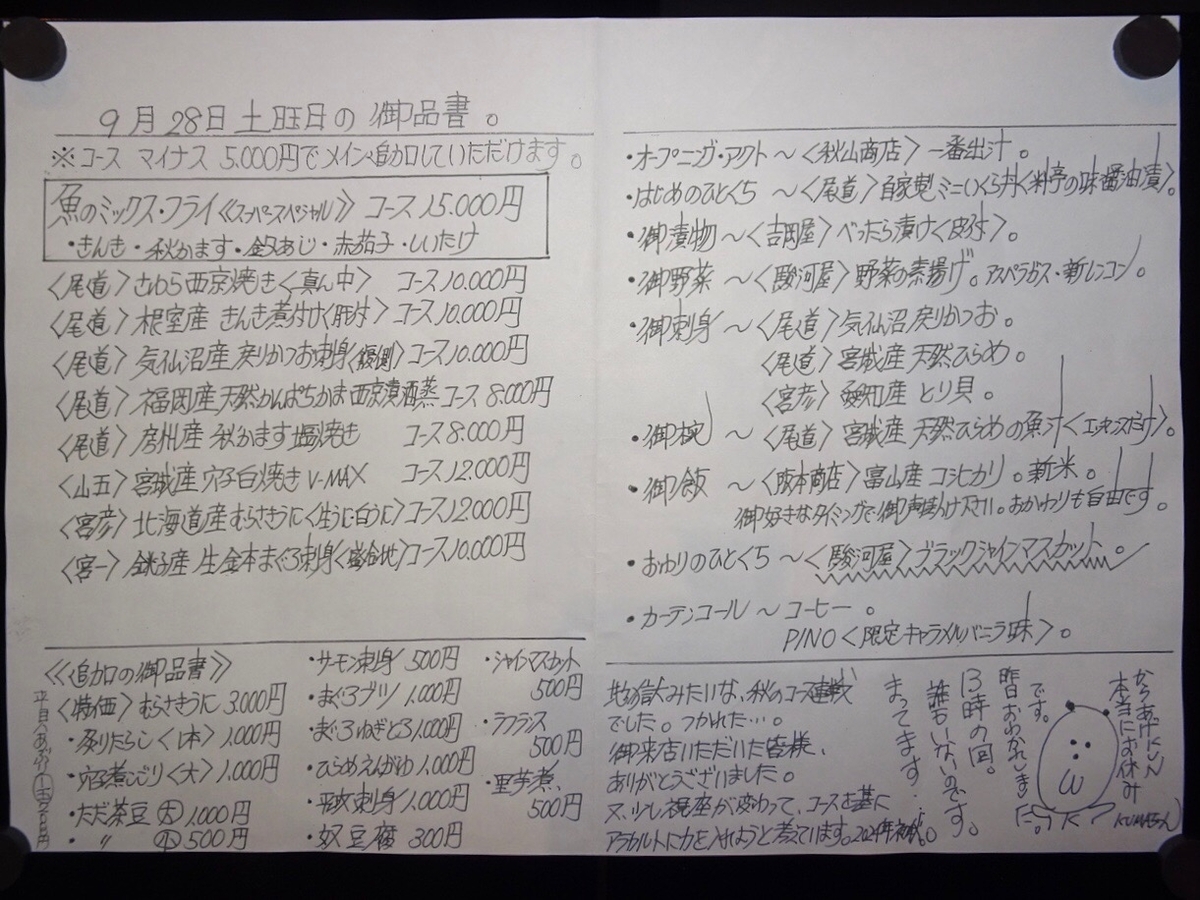 9月28日土曜日の御品書。
※コース マイナス 5.000円でメイン追加していただけます。
魚のミックス・フライ《スーパースペシャル》 コース15.000円
・きんき・秋かます・金ぷあじ・赤茄子・しいたけ
〈尾道〉さわら西京焼き〈真ん中〉 コース10.000円
〈尾道〉根室産 きんき煮付け〈肝付〉コース10.000円
〈尾道〉気仙沼産 戻りかつお刺身〈腹側〉コース10.000円
〈尾道〉福岡産天然かんぱちかま西京漬酒蒸 コース8.000円
〈尾道〉房州産 秋かます塩焼き コース8.000円
〈山五〉宮城産 穴子白焼き V-MAX コース12.000円
〈宮彦〉北海道産むらさきうに〈生うに白うに〉コース12.000円
〈宮一〉銚子産 生金本まぐろ刺身〈盛合せ〉コース10.000円
《追加の御品書》
〈特価〉むらさきうに 3.000円
・炙りたらこ〈1本〉1.000円
・穴子煮こごり〈大〉1.000円
・ただ茶豆 大 1.000円
・ 〃 小 500円
・サーモン刺身 500円
・まぐろブツ 1.000円
・まぐろねぎとろ 1.000円
・ひらめえんがわ 1.000円
・平政刺身 1.000円
・奴豆腐 300円
・シャインマスカット
500円
・ラフランス
500円
・里芋煮
500円
・オープニング・アクト～〈秋山商店〉一番出汁。
・はじめのひとくち～〈尾道〉自家製ミニいくら丼〈料亭の味醤油漬〉。
・御漬物～〈吉岡屋〉べったら漬け〈皮付〉。
・御野菜～〈駿河屋〉野菜の素揚げ。アスパラガス・新レンコン。
・御刺身～〈尾道〉気仙沼 戻りかつお。
〈尾道〉宮城産 天然ひらめ。
〈宮彦〉愛知産 とり貝。
・御椀～〈尾道〉宮城産 天然ひらめの魚汁〈エッセンスだけ〉。
・御飯～〈阪本商店〉富山産コシヒカリ。新米。
御好きなタイミングで御声掛け下さい。おかわりも自由です。
・おわりのひとくち～〈駿河屋〉ブラックシャインマスカット。
・カーテンコール～コーヒー。
PINO〈限定キャラメルバニラ味〉。
地獄みたいな、秋のコース連戦
でした。つかれた…。
御来店いただいた皆様、
ありがとうございました。
又、少し視座が変わって、コースを基に
アラカルトに力を入れようと考えています。2024年初秋。
からあげくん
本当にお休み
です。
昨日おわかれします
13時の回。
誰もいないのです。
まってます…。
KUMAちゃん